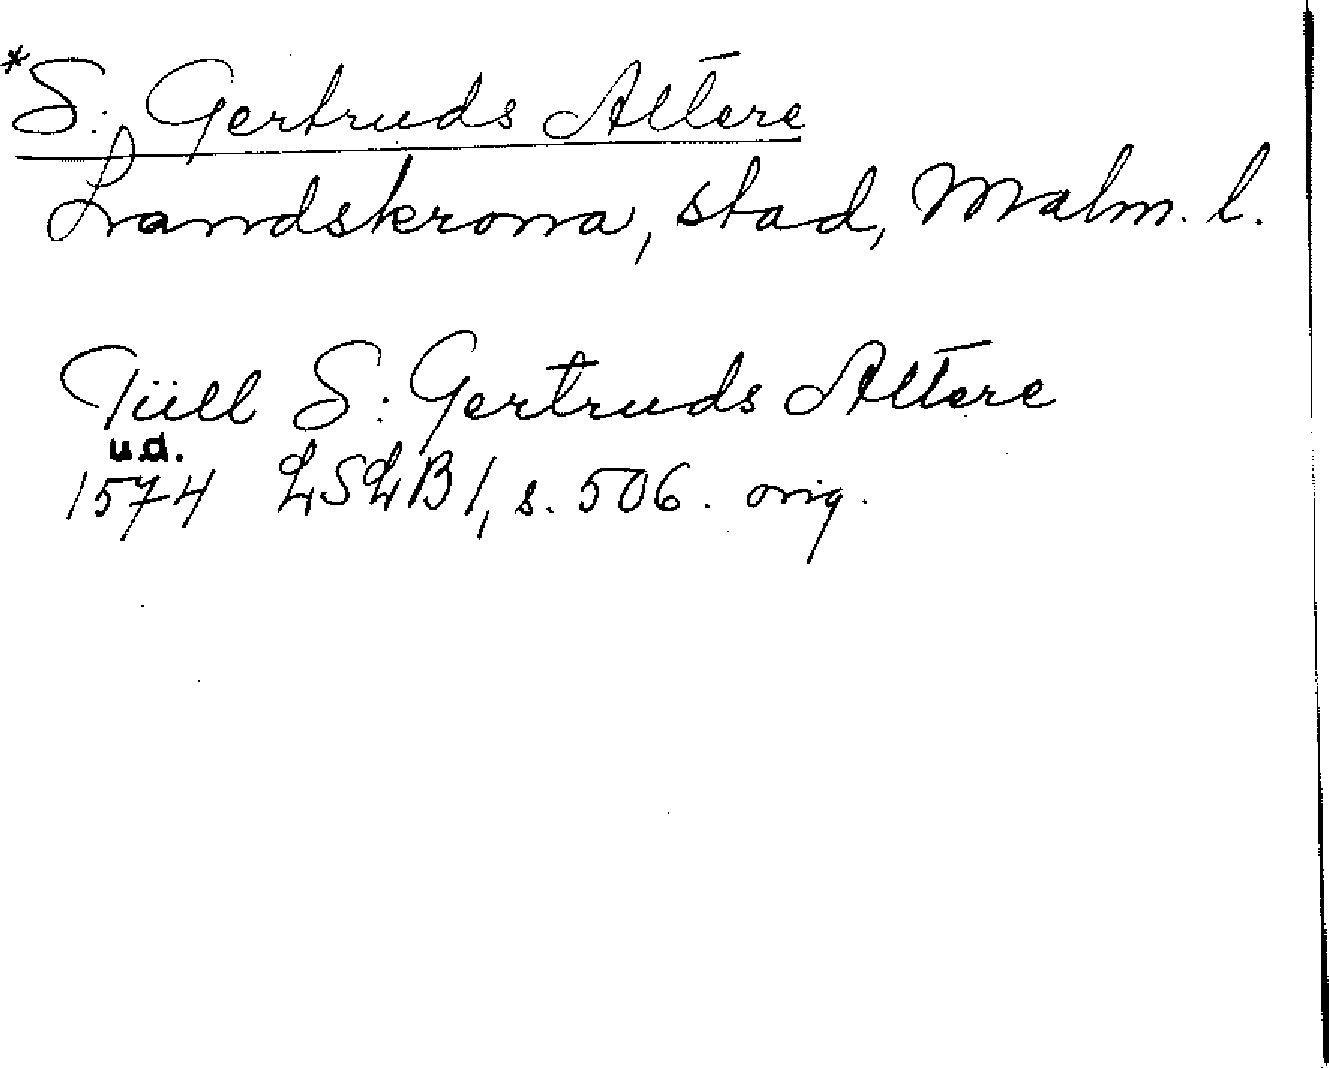 *S: Gertruds Altere
Landskrona, stad, Malm. l.
Tüll S: Gertruds Altere
u.d.
1574 LSLB 1, s. 506. orig.